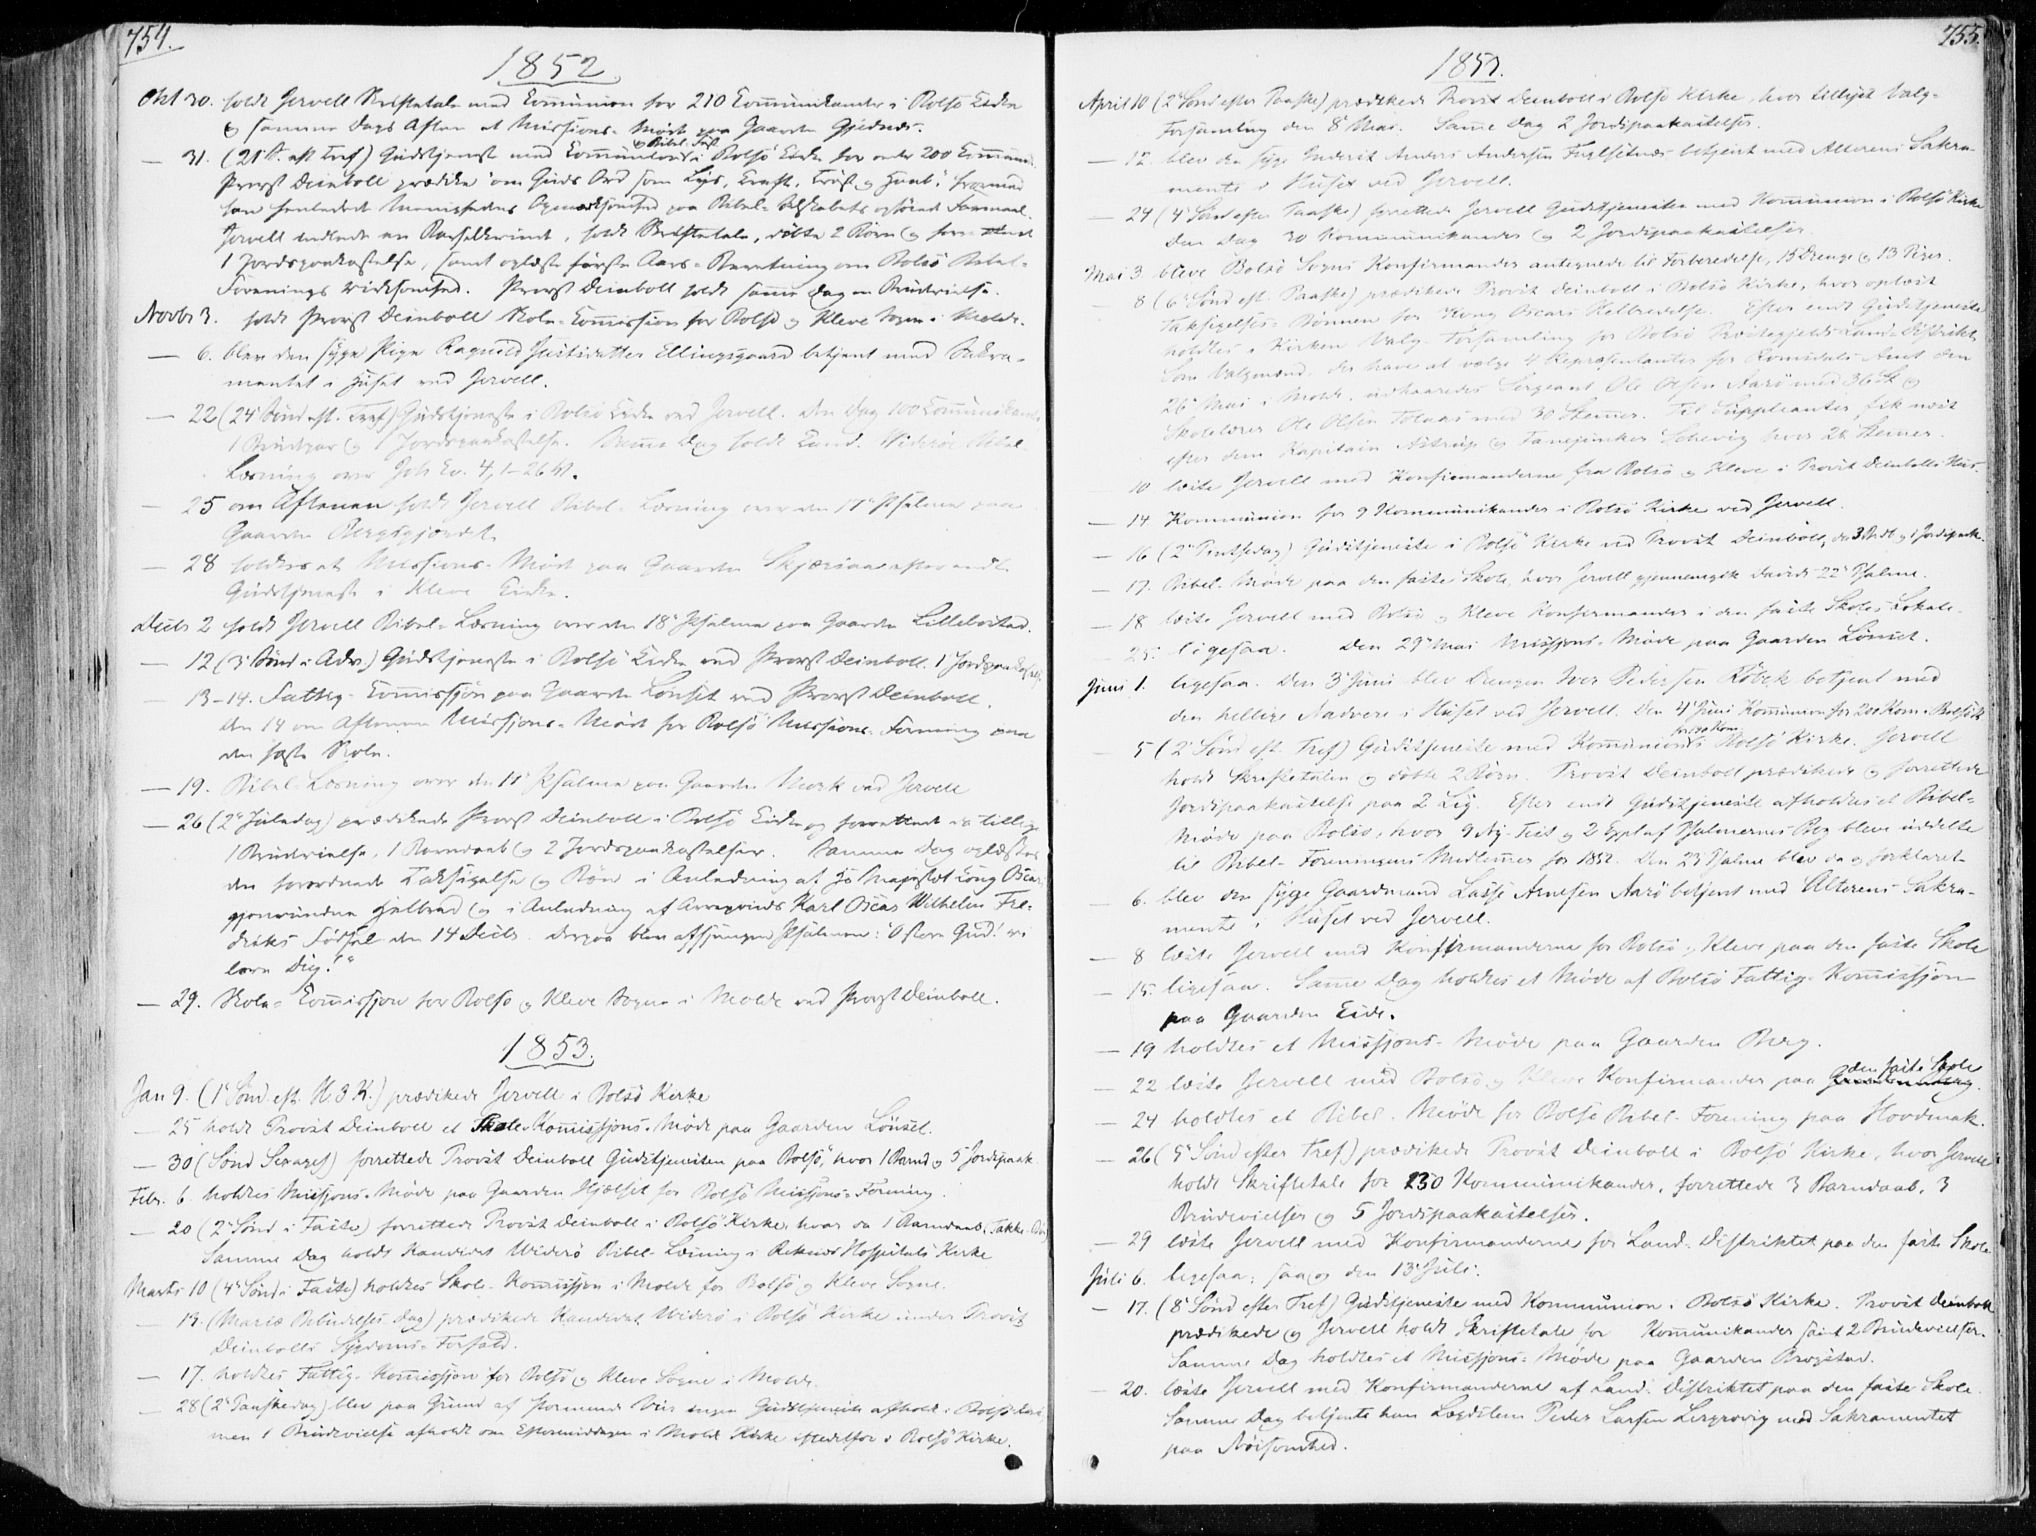 754.
1852
Okt 30. holdt Jervell Skriftetale med Communion for 210 Communikanter i Bolsø Kirke
& samme Dags Aften et Missions-Møde paa Gaarden Gjednes.
& Bibel-Fest
— 31. (21 S. eft Tref) Gudstjeneste med Communion i Bolsø Kirke for under 200 Commun:
Provst Deinboll prædike om Guds Ord som Lys, Kraft, Trøst & Haab, hvormed
han henledede Menighedens Opmærksomhed paa Bibel-Selskabets opførende Formaal.
Jervell indledte en Barselkvinde, holdt Skriftetale, døbte 2 Børn &
1 Jordspaakastelse, samt oplæste første Aars-Beretning om Bolsø Bibel-
Forenings Virksomhed. Provst Deinboll holdt samme Dag en Brudevielse.
Novbr 3. holdt Provst Deinboll Skole-Commission for Bolsø & Kleve Sogne i Molde.
— 6. blev den syge Pige Ragnild Ellingsgaard betjent med Sakra-
mentet i Huset ved Jervell.
— 22 (24 Sønd eft. Tref) Gudstjeneste i Bolsø Kirke ved Jervell. Den Dag 100 Communikanter
1 Brudepar & 1 Jordspaakastelse. Samme Dag holdt Cand. Widerøe Bibel-
Læsning over Joh Ev. 4, 1-26 .
— 25 om Aftenen holdt Jervell Bibel-Læsning over den 17de Psalme paa
Gaarden Bergsgjærdet.
— 28 holdtes et Missions-Møde paa Gaarden Skjærsaa efter endt
Gudstjeneste i Kleve Kirke.
Decbr 2 holdt Jervell Bibel-Læsning over den 18de Psalme paa Gaarden Lillebostad.
— 12 (3 Sønd i Adv.) Gudstjeneste i Bolsø Kirke ved Provst Deinboll. 1 Jordspaakastelse
— 13-14. Fattig-Commission paa Gaarden Lønset ved Provst Deinboll.
den 14 om Aftenen Missions-Møde for Bolsø Missions-Forening paa
den faste Skole.
— 19. Bibel-Læsning over den Psalme paa Gaarden Mork ved Jervell
— 26 (2den Juledag) prædikede Provst Deinboll i Bolsø Kirke og forrettede da tillige
1 Brudevielse, 1 Barnedaab & 2 Jordspaakastelser. Samme Dag oplæstes
den forordnede Taksigelse & Bøn i Anledning af Hs Majestæt Kong Oscars
gjenvundne Helbred & i Anledning af Arveprinds Karl Oscar Wilhelm Fre-
driks Fødsel den 14 Decbr. Derpaa blev afsjungen Psalmen: "O store Gud! vi
love Dig!"
— 29. Skole-Commission for Bolsø & Kleve Sogne i Molde ved Provst Deinboll.
1853.
Jan 9. (1 Sønd eft. H. 3 K.) prædikede Jervell i Bolsø Kirke
— 25 holdt Provst Deinboll et Skole-Kommissjons-Møde paa Gaarden Lönset.
— 30 (Sønd Sexages) forrettede Provst Deinboll Gudstjenesten paa Bolsø, hvor 1 Barned & 5 Jordspaak.
Febr. 6. holdtes Missjons-Møde paa Gaarden Hjælset for Bolsø Missjons-Forening.
— 20 (2den Sønd i Faste) forrettede Provst Deinboll i Bolsø Kirke, hvor da 1 Barnedaab,
Samme Dag holdt Kandidat Widerö Bibel-Læsning i Reknes Hospitals Kirke
Marts 10 (4de Sønd i Faste) holdtes Skole-Kommissjon i Molde for Bolsø & Kleve Sogne.
— 13. (Mariæ Bebudelses Dag) prædikede Kandidat Widerö i Bolsø Kirke under Provst
Deinbolls Sygdoms-Forfald.
— 17. holdtes Fattig-Kommissjon for Bolsø & Kleve Sogne i Molde.
— 28 (2den Paaskedag) blev paa Grund af stormende Veir ingen Gudstjeneste afholdt i Bolsø Kirke,
men 1 Brudevielse afholdt om Eftermiddagen i Molde Kirke istedetfor i Bolsø Kirke.
755.
1853.
April 10 (2 Sønd efter Paaske) prædikede Provst Deinboll i Bolsø Kirke, hvor tillyst Valg-
Forsamling den 8de Mai. Samme Dag 2 Jordspaakastelser.
— 12. blev den syge Inderst Anders Andersen Fuglsetnes betjent med Alterens Sakra-
mente i Huset ved Jervell.
— 24 (4 Sønd efter Paaske) forrettede Jervell Gudstjenesten med Kommunion i Bolsø Kirke
Den Dag 30 Kommunikanter & 2 Jordspaakastelser.
Mai 3 bleve Bolsø Sogns Konfirmander antegnede til Forberedelse, 15 Drenge & 13 Piger.
— 8 (6te Sønd eft. Paaske) prædikede Provst Deinboll i Bolsø Kirke, hvor oplæst
Taksigelses-Bønnen for Kong Oscars Helbredelse. Efter endt Gudstjeneste
holdtes i Kirken Valg-Forsamling for Bolsø Præstegjelds Land-Distrikt.
Som Valgmænd, der have at vælge 4 Repræsentanter for Romsdals-Amt den
26de Mai i Molde, udkaaredes Sergeant Ole Olsen Aarö med 36 St &
Skolelærer Ole Olsen Tolaas med 30 Stemmer. Til Suppleanter fik næst
efter dem Kapitain Astrup & Fanejunker Schevig hver 28 Stemmer.
— 10 læste Jervell med Konfirmanderne fra Bolsø & Kleve i Provst Deinbolls Hus.
— 14 Kommunion for 9 Kommunikanter i Bolsø Kirke ved Jervell.
— 16 (2den Pintsedag) Gudstjeneste i Bolsø Kirke ved Provst Deinboll, & 1 Jordspaak.
— 17. Bibel-Møde paa den faste Skole, hvor Jervell gjennemgik Davids 22de Psalme.
— 18 læste Jervell med Bolsø & Kleve Konfirmander i den faste Skoles Lokale.
— 25. ligesaa. Den 29de Mai Missjons-Møde paa Gaarden Lönset.
Juni 1. ligesaa. Den 3de Juni blev Drengen Iver Pedersen Röbek betjent med
den hellige Nadvere i Huset ved Jervell. Den 4de Juni Kommunion for 200 Kom. i Bolsø K
— 5 (2 Sønd eft. Tref) Gudstjeneste med Kommunion i Bolsø Kirke. Jervell
holdt Skriftetalen & døbte 2 Børn. Provst Deinboll prædikede & forrettede
Jordspaakastelse paa 2 Lig. Efter endt Gudstjeneste afholdtes et Bibel-
Møde paa Bolsø, hvor 9 Ny-Test & 2 Expl af Psalmernes Bog bleve uddelte
til Bibel-Foreningens Medlemmer for 1852. Den 23 Psalme blev da & forklaret.
— 6. blev den syge Gaardmand Lasse Arnesen Aarö betjent med Alterens Sakra-
mente i Huset ved Jervell.
— 8 læste Jervell med Konfirmanderne for Bolsø & Kleve paa den faste Skole
— 15. ligesaa. Samme Dag holdtes et Møde af Bolsø Fattig-Kommissjon
paa Gaarden Eide.
— 19 holdtes et Missjons-Møde paa Gaarden Berg.
— 22 læste Jervell med Bolsø & Kleve Konfirmander paa den faste Skole.
— 24 holdtes et Bibel-Møde for Bolsø Bibel-Forening paa Hovdenak.
— 26 (5te Sønd efter Tref) prædikede Provst Deinboll i Bolsø Kirke, hvor Jervell
holdt Skriftetale for 230 Kommunikanter, forrettede 3 Barnedaab, 3
Brudevielser & 5 Jordspaakastelser.
— 29 læste Jervell med Konfirmanderne for Land-Distriktet paa den faste Skole
Juli 6. ligesaa; saa & den 13de Juli.
— 17. (8de Sønd efter Tref) Gudstjeneste med Kommunion i Bolsø Kirke. Provst Deinboll
prædikede & Jervell holdt Skriftetale for Kommunikanter samt 2 Brudevielser.
Samme Dag holdtes et Missjons-Møde paa Gaarden Årøstad.
— 20. læste Jervell med Konfirmanderne af Land-Distriktet paa den faste Skole.
Samme Dag betjente han Lægdslem Peder Larsen Lergrovig med Sakramentet
paa Nöisomhed.